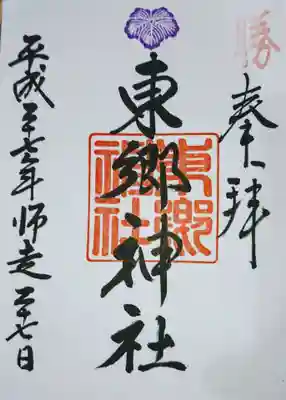 勝
奉拝
東郷神社
東郷
神社
平成二十七年師走二十七日